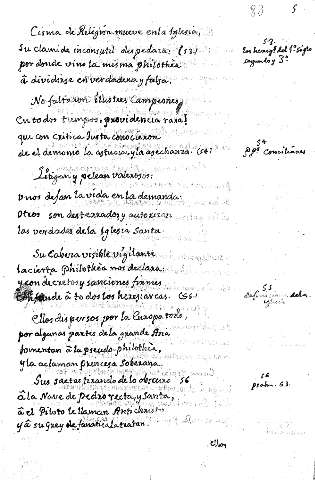 83 5
Cisma de Religión mueve en la Iglesia,
su clamide inconsutil despedaza: (53)
por donde vino la misma philothéa
â dividirse en verdadera y falsa.
53.
los heregs del 1º siglo
segundo y 3º
No faltaron ilustres Campeones,
En todos tiempos, providencia rara!
que con critica justa conocieron
de el demonio la astucia, y la asechanza. (54)
54
pps Conciliares
Litigan y pelean valerosos:
unos dejan la vida en la demanda:
otros son desterrados, y autorizan
las verdades de la Iglesia Santa.
Su Cabeza visible vigilante
la cierta Philothéa nos declara:
y con decretos y sanciones firmes
confunde â todos los heresiarcas. (55)
55
de la
Iglesia
Ellos dispersos por la Europa todo,
por algunas partes de la grande Asia
fomentan â la pseudo-philothéa,
y la aclaman Princesa Soberana.
Sus saetas tirando de lo obscuro 56
â la Nave de Pedro recta, y Santa,
â el Piloto le llaman Antichristo
y â su grey de fanatica la tratan.
56
psalm. 63.
Ellos